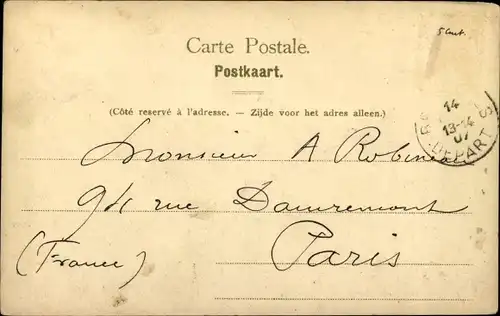 5 Cent.
Carte Postale.
Postkaart.
(Côté reservé à l'adresse. — Zijde voor het adres alleen.)
14
13-14
07
DEPART
Monsieur A Robineau
94 rue Damremont
Paris
(France)